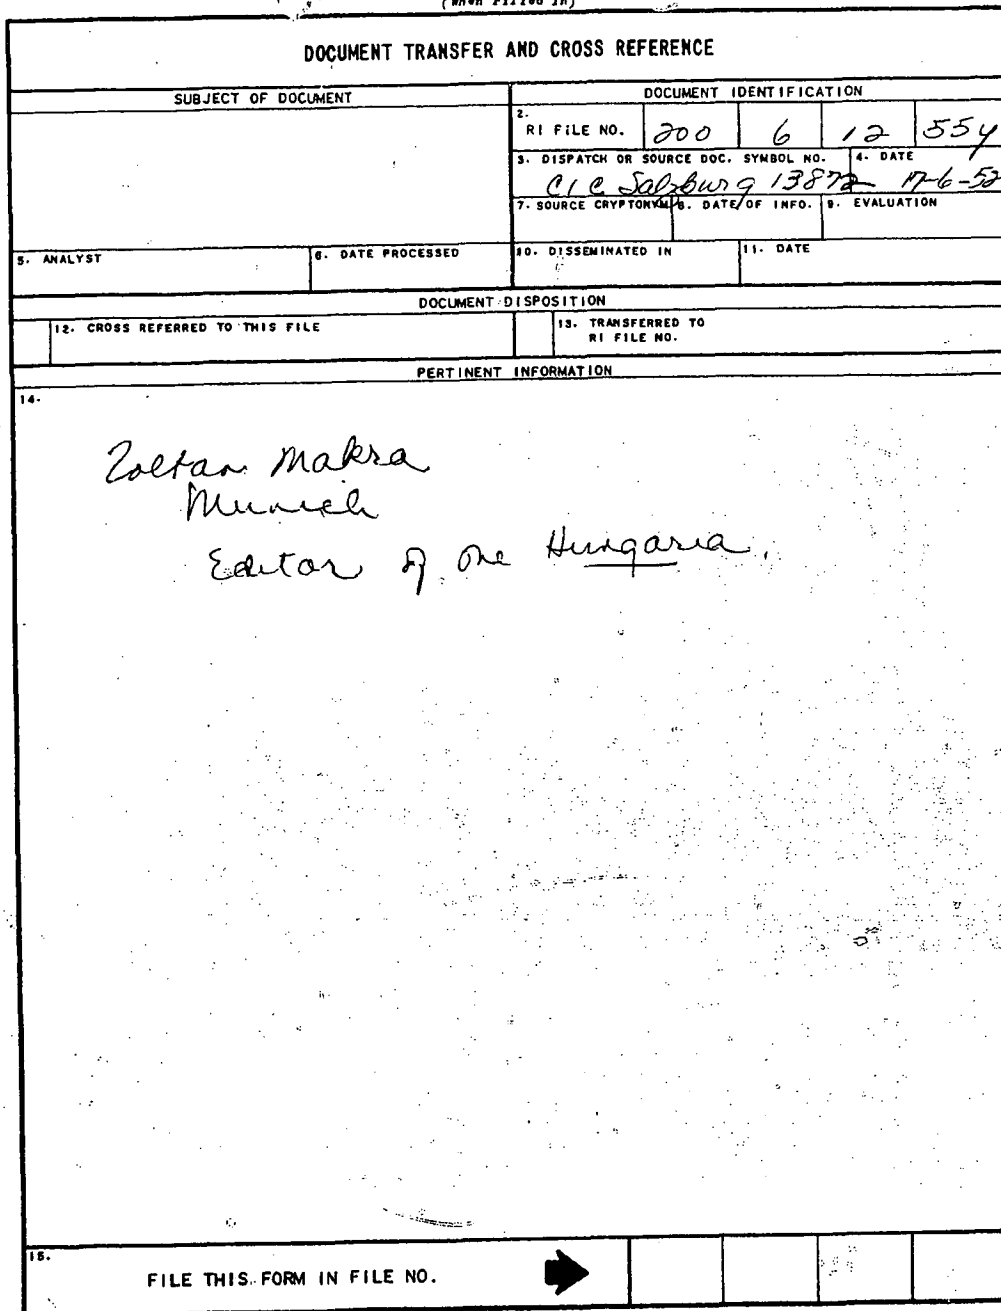 (When Filled In)
DOCUMENT TRANSFER AND CROSS REFERENCE
SUBJECT OF DOCUMENT
DOCUMENT IDENTIFICATION
2. RI FILE NO. 200 6 12 554
3. DISPATCH OR SOURCE DOC. SYMBOL NO. 4. DATE
CIC Salzburg 13872 17-6-52
7. SOURCE CRYPTONYM 8. DATE OF INFO. 9. EVALUATION
5. ANALYST 6. DATE PROCESSED 10. DISSEMINATED IN 11. DATE
DOCUMENT DISPOSITION
12. CROSS REFERRED TO THIS FILE 13. TRANSFERRED TO
RI FILE NO.
PERTINENT INFORMATION
14.
Zoltan Makra
Munich
Editor of the Hungaria.
15.
FILE THIS FORM IN FILE NO.